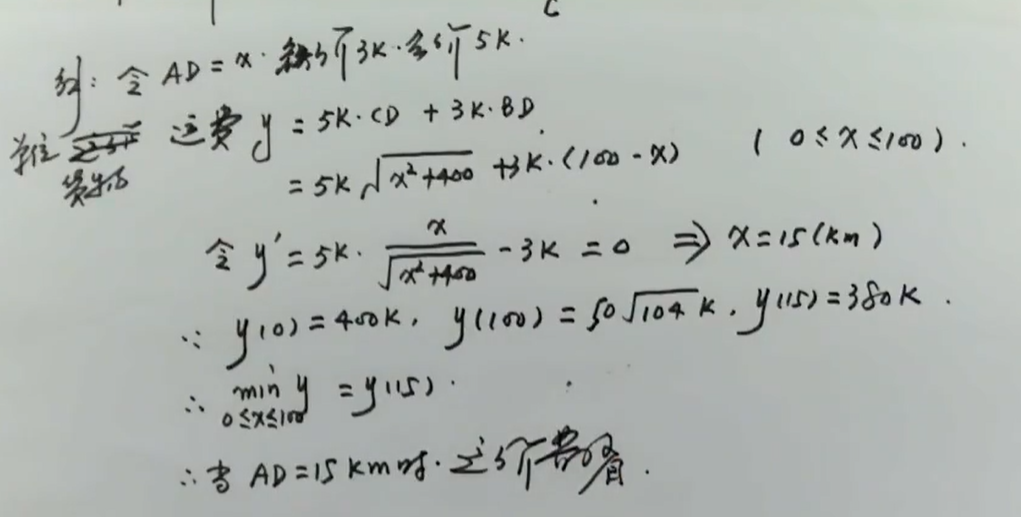 C
解: 令 AD = x. 铁5f 3K. 公5f 5K.
单位 运费 y = 5K·CD + 3K·BD
费为
= 5K√(x²+400) + 3K·(100 - x) (0 ≤ x ≤ 100).
令 y' = 5K· x/√(x²+400) - 3K = 0 ⇒ x = 15 (km)
∵ y(0) = 400K, y(100) = 50√104 K, y(15) = 380K.
∴ min y = y(15).
0≤x≤100
∴ 当 AD = 15 km 时. 运费省.